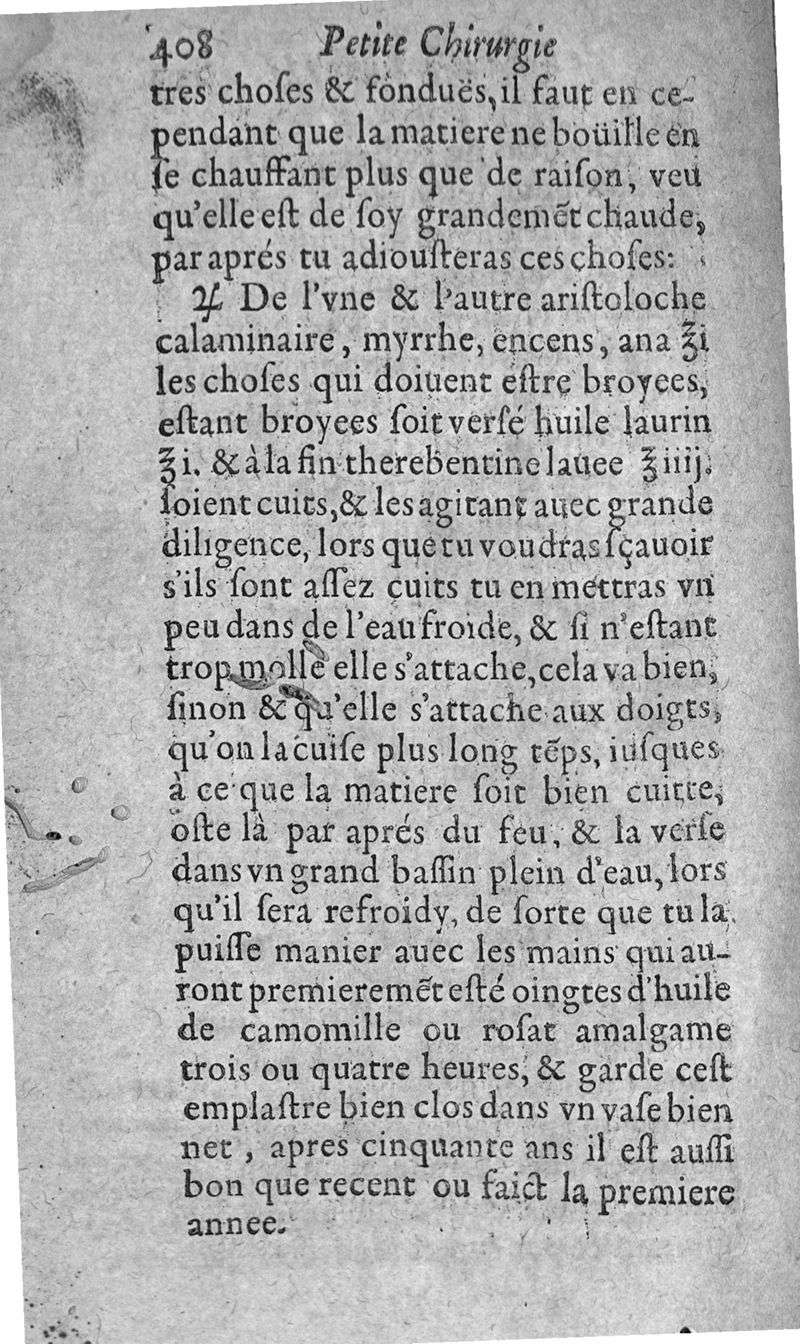 408 Petite Chirurgie
tres choſes & fonduës, il faut en ce-
pendant que la matiere ne boüille en
ſe chauffant plus que de raiſon, veu
qu'elle eſt de ſoy grandemẽt chaude,
par aprés tu adiouſteras ces choſes:
♃ De l'vne & l'autre ariſtoloche
calaminaire, myrrhe, encens, ana ℥i
les choſes qui doiuent eſtre broyees,
eſtant broyees ſoit verſé huile laurin
℥i. & à la fin therebentine lauee ℥iiij.
ſoient cuits, & les agitant auec grande
diligence, lors que tu voudras ſçauoir
s'ils ſont aſſez cuits tu en mettras vn
peu dans de l'eau froide, & ſi n'eſtant
trop molle elle s'attache, cela va bien,
ſinon & qu'elle s'attache aux doigts,
qu'on la cuiſe plus long tẽps, iuſques
à ce que la matiere ſoit bien cuitte,
oſte là par aprés du feu, & la verſe
dans vn grand baſſin plein d'eau, lors
qu'il ſera refroidy, de ſorte que tu la
puiſſe manier auec les mains qui au-
ront premieremẽt eſté oingtes d'huile
de camomille ou roſat amalgame
trois ou quatre heures, & garde ceſt
emplaſtre bien clos dans vn vaſe bien
net, apres cinquante ans il eſt auſſi
bon que recent ou faict la premiere
annee.